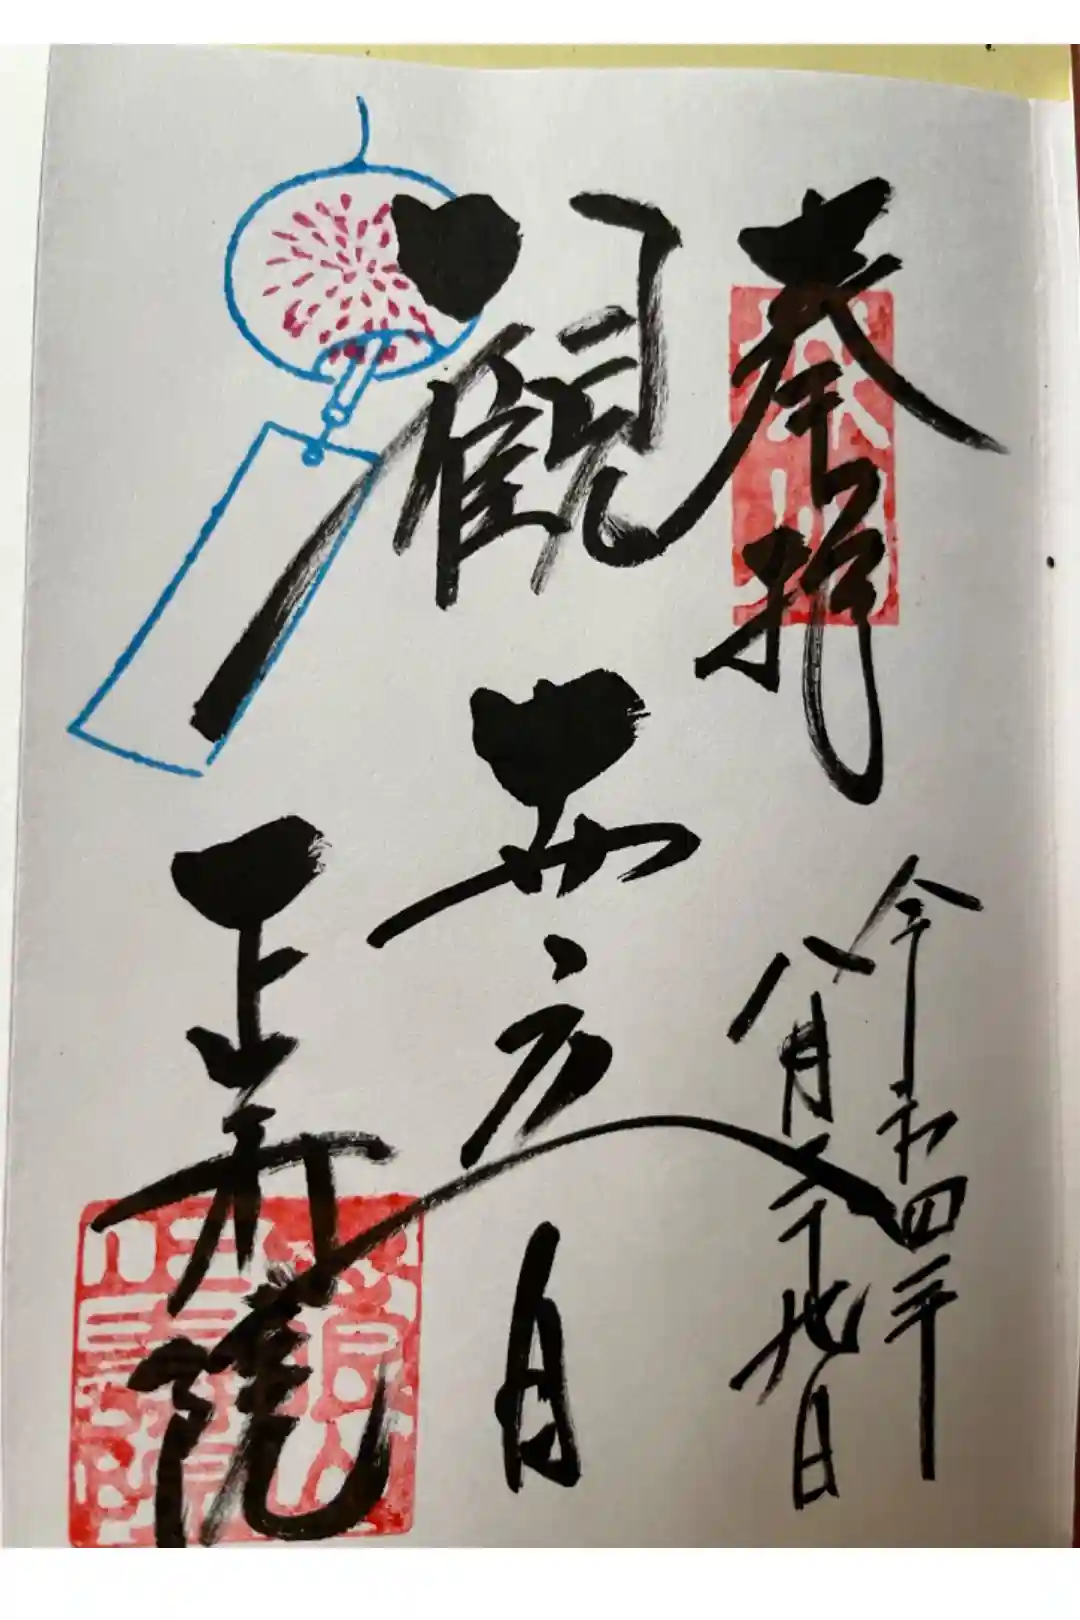 奉拝
令和四年
八月二十九日
觀世音
正寿院
正壽院